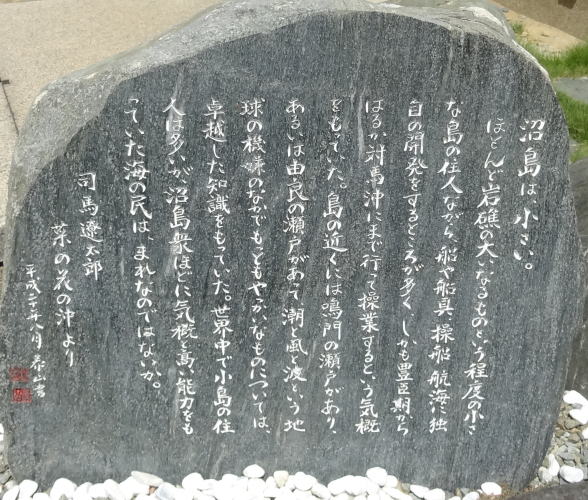 沼島は、小さい。
ほとんど岩礁の大いなるものという程度の小さ
な島の住人ながら、船や船具、操船、航海に独
自の開発をするところが多く、しかも豊臣期から
はるか対馬沖にまで行って操業するという気概
をもっていた。島の近くには鳴門の瀬戸があり、
あるいは由良の瀬戸があって、潮と風と波という地
球の機嫌のなかでもっともやっかいなものについては、
卓越した知識をもっていた。世界中で小島の住
人は多いが、沼島衆ほどに気概と高い能力をも
っていた海の民は、まれなのではないか。
司馬遼太郎
菜の花の沖より
平成二十年八月 泰山書